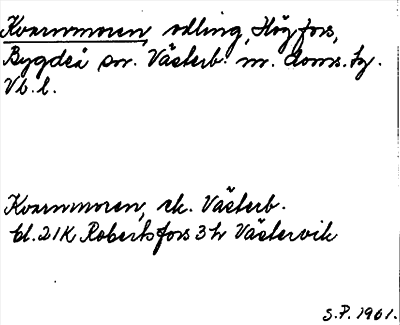 Kvarnmoren, odling, Högfors,
Bygdeå sn. Västerb. n. doms. tg.
Vb. l.
Kvarnmoren, ek. Västerb.
bl. 21K Robertsfors 3h Västervik
S.P. 1961.